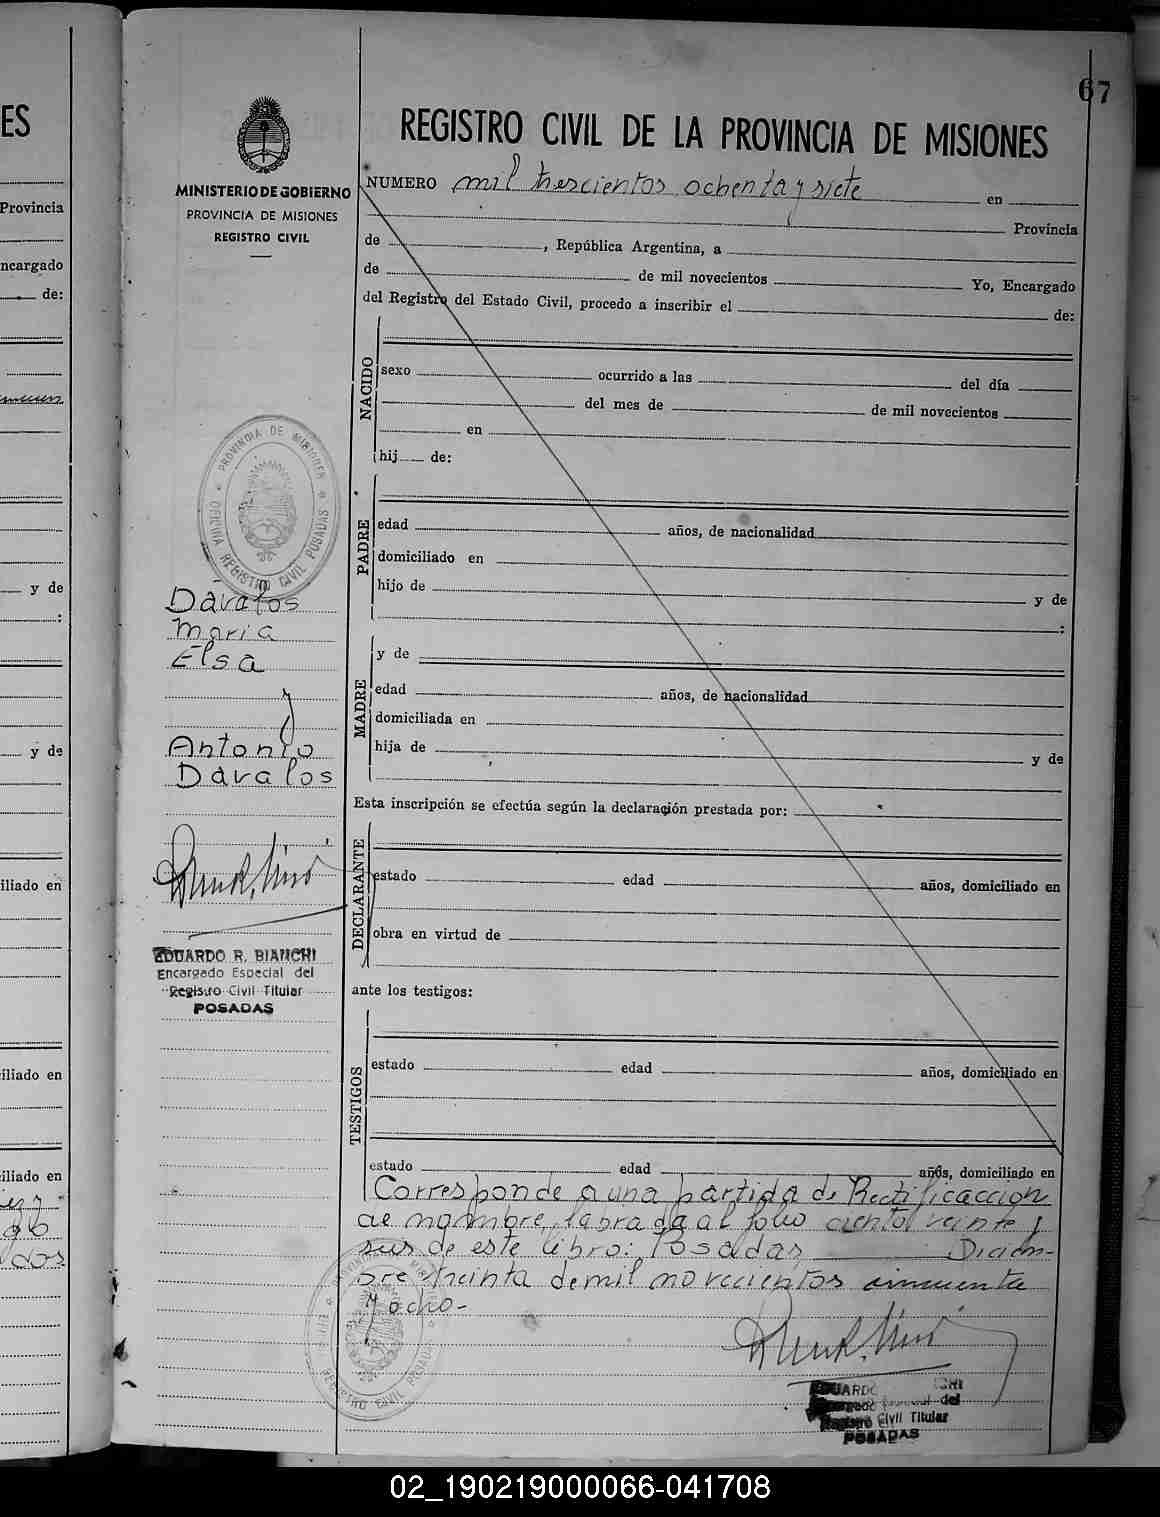 67
MINISTERIO DE GOBIERNO
PROVINCIA DE MISIONES
REGISTRO CIVIL
REGISTRO CIVIL DE LA PROVINCIA DE MISIONES
NUMERO mil trescientos ochenta y siete en
Provincia
de , República Argentina, a
de de mil novecientos Yo, Encargado
del Registro del Estado Civil, procedo a inscribir el de:
NACIDO
sexo ocurrido a las del día
del mes de de mil novecientos
en
hij de:
PADRE
edad años, de nacionalidad
domiciliado en
hijo de y de
:
MADRE
y de
edad años, de nacionalidad
domiciliada en
hija de y de
Esta inscripción se efectúa según la declaración prestada por:
DECLARANTE
estado edad años, domiciliado en
obra en virtud de
ante los testigos:
TESTIGOS
estado edad años, domiciliado en
estado edad años, domiciliado en
Corresponde a una partida de Rectificaccion
de nombre, labrada al folio ciento veinte y
seis de este libro: Posadas, Diciem-
bre treinta de mil novecientos cincuenta
y ocho-
EDUARDO
del
Registro Civil Titular
POSADAS
PROVINCIA DE MISIONES
OFICINA REGISTRO CIVIL POSADAS
Dávalos
Maria
Elsa
y
Antonio
Davalos
EDUARDO R. BIANCHI
Encargado Especial del
Registro Civil Titular
POSADAS
ES
Provincia
ncargado
de:
y de
:
y de
iliado en
iliado en
iliado en
dos
02_190219000066-041708